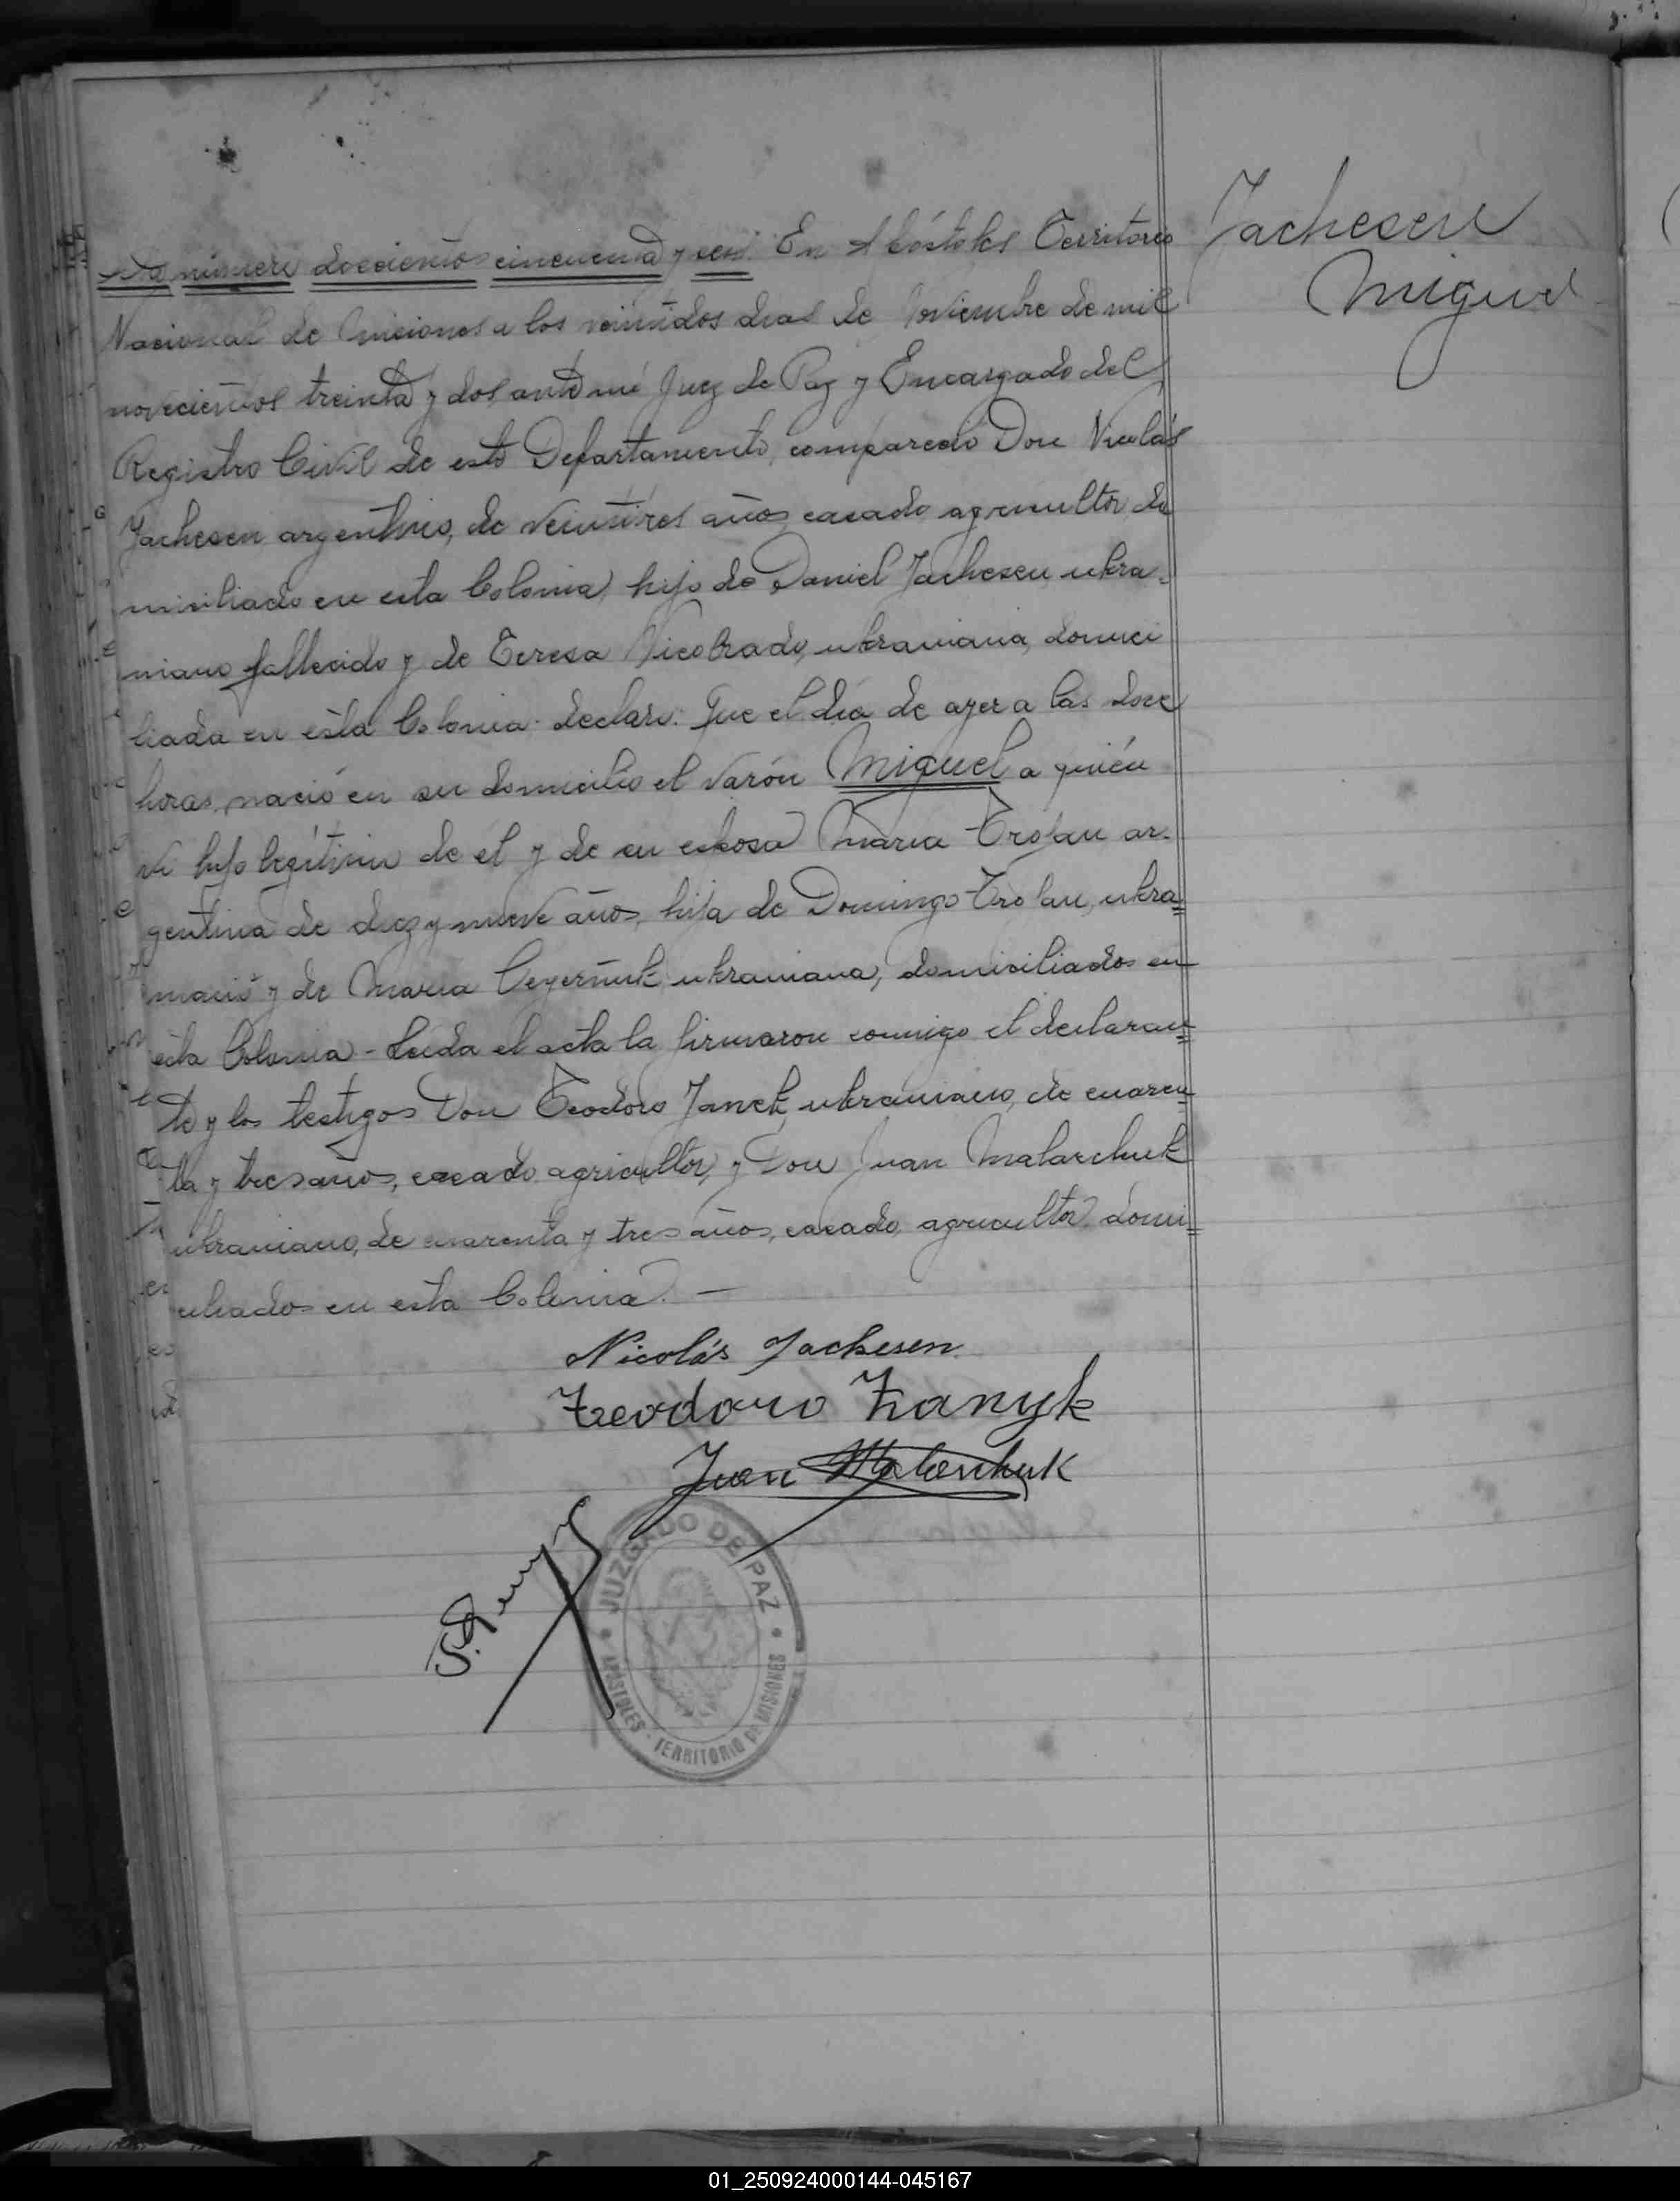 Acta número doscientos cincuenta y seis. En Apóstoles Territorio
Nacional de Misiones a los veintidos dias de Noviembre de mil
novecientos treinta y dos, ante mi Juez de Paz y Encargado del
Registro Civil de este Departamento, compareció Don Nicolás
Jachesen argentino, de veintitres años, casado, agricultor, do
miciliado en esta Colonia, hijo de Daniel Jachesen, ukra-
niano fallecido y de Teresa ukraniana, domici
liada en esta Colonia declaró: Que el día de ayer a las doce
horas, nació en su domicilio el varón Miguel a quién
ví hijo legítimo de el y de su esposa María Trojan ar-
gentina de diez y nueve años, hija de Domingo Trojan, ukra=
niano y de Maria ukraniana, domiciliados en
esta Colonia - Leida el acta la firmaron conmigo el declaran=
te y los testigos Don Teodoro Janek, ukraniano, de cuaren=
ta y tres años, casado, agricultor, y Don Juan Malarchuk
ukraniano, de cuarenta y tres años, casado, agricultor, domi=
ciliados en esta Colonia. —
Jachesen
Miguel
Nicolás Jachesen
Teodoro Zanyk
Juan Malarchuk
JUZGADO DE PAZ
APÓSTOLES - TERRITORIO DE MISIONES
01_250924000144-045167